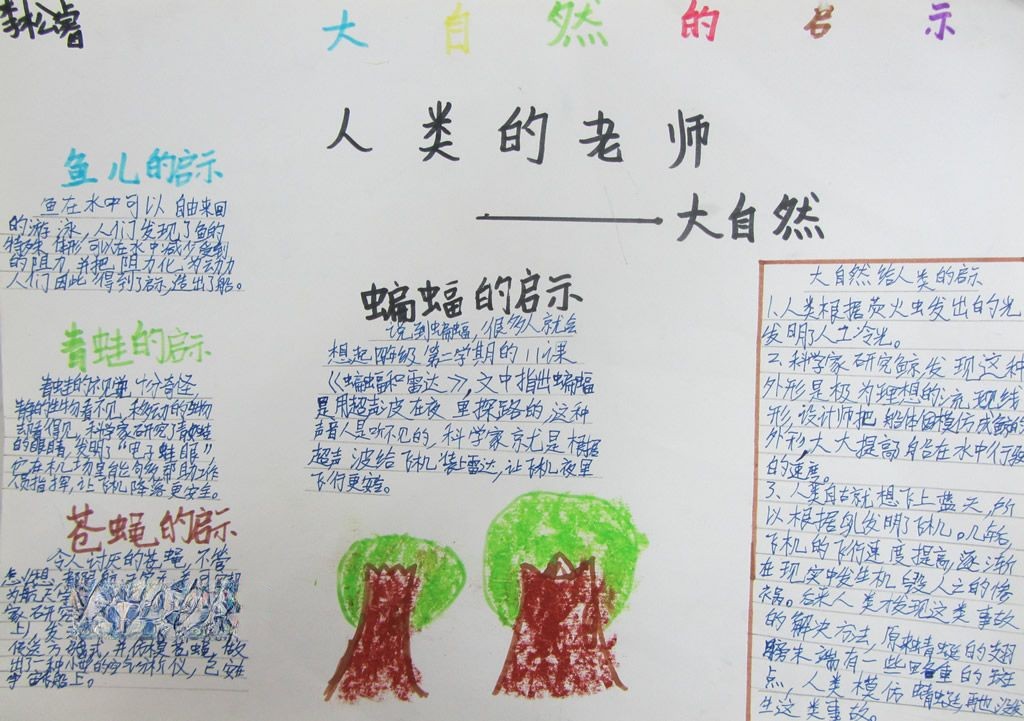 李松睿
大自然的启示
人类的老师
——大自然
鱼儿的启示
鱼在水中可以自由来回
的游泳,人们发现了鱼的
特殊体形可以在水中减少受到
的阻力,并把阻力化为动力
人们因此得到了启示,造出了船。
青蛙的启示
青蛙的 十分奇怪,
静的 物看不见,移动的生物
却看得见。科学家研究了青蛙
的眼睛,发明了“电子蛙眼”
它在机场里能够帮助工作
人员指挥,让飞机降落更安全。
苍蝇的启示
令人讨厌的苍蝇,不管
航天
家研究
上,发
方式,并仿模苍蝇,做
出了一种小型的空气分析仪,已安在
宇宙船上。
蝙蝠的启示
说到蝙蝠,很多人就会
想起 级第二学期的11课
《蝙蝠和雷达》,文中指出蝙蝠
是用超声波在夜里探路的,这种
声音人是听不见的,科学家就是根据
超声波给飞机装上雷达,让飞机夜里
飞行更安全。
大自然给人类的启示
1、人类根据荧火虫发出的光
发明了人工冷光。
2、科学家研究鲸发现这种
外形是极为理想的流现线
形,设计师把船体 模仿成鲸的
外形,大大提高自告在水中行驶
的速度。
3、人类自古就想飞上蓝天,所
以根据 发明了飞机。几轮
飞机的飞行速度提高,逐渐
在现实中发生机毁人亡的惨
祸。后来人类才发现这类事故
的解决方法,原来青蜓的翅
膀末端有一些 重的斑
点,人类模仿晴蜓再也没发
生这类事故。